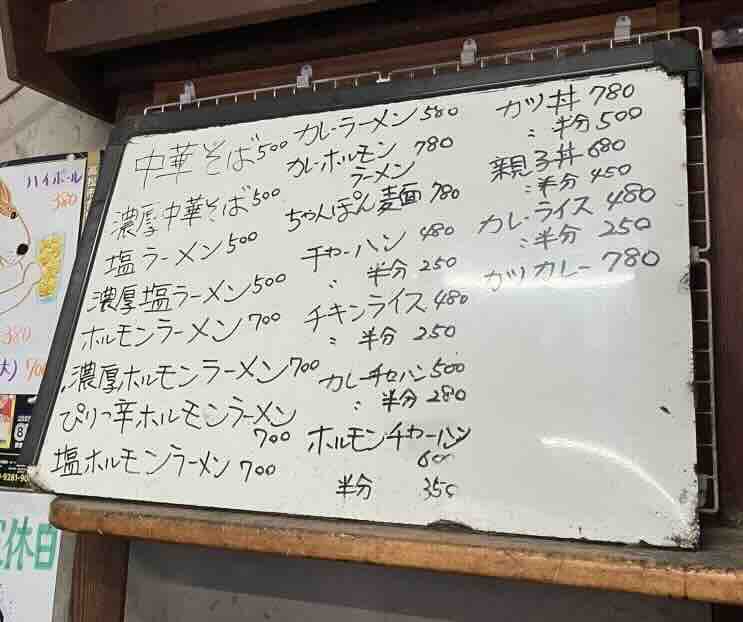 中華そば500
濃厚中華そば500
塩ラーメン500
濃厚塩ラーメン500
ホルモンラーメン700
濃厚ホルモンラーメン700
ぴりっ辛ホルモンラーメン
700
塩ホルモンラーメン700
カレーラーメン580
カレーホルモン 780
ラーメン
ちゃんぽん麺 780
チャーハン 480
〃 半分 250
チキンライス 480
〃 半分 250
カレーチャーハン500
〃 半分 280
ホルモンチャーハン
600
半分 350
カツ丼 780
〃 半分 500
親子丼 680
〃 半分 450
カレーライス 480
〃 半分 250
カツカレー 780
ハイボール
380
380
大) 700
休日